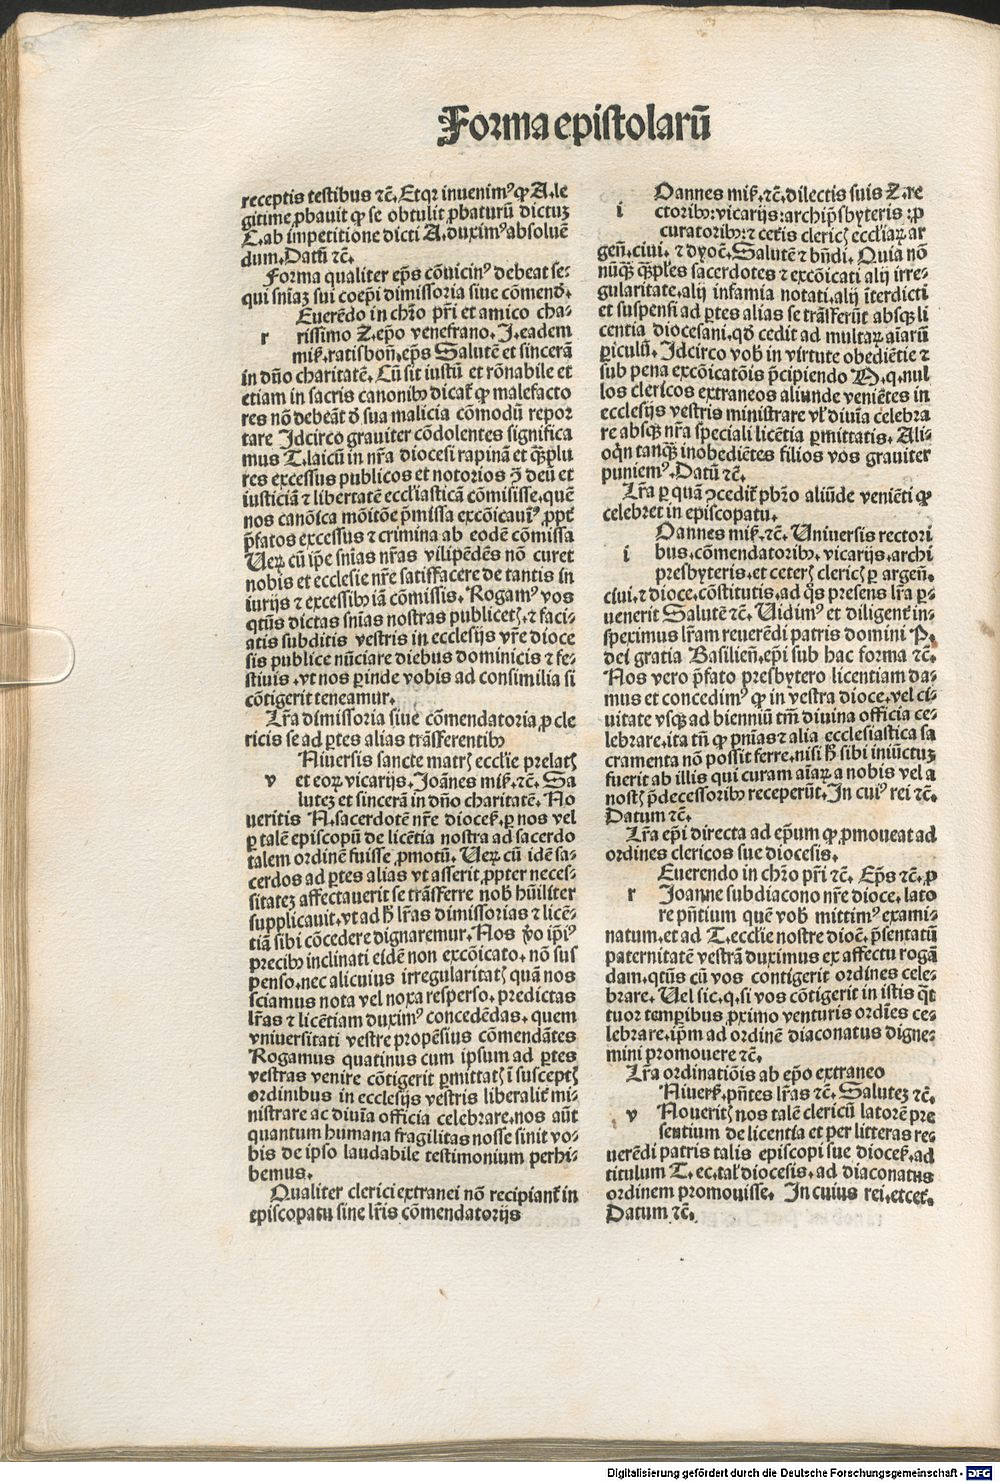 Forma epistolarū
receptis testibus ⁊c̄. Etqꝛ inuenimꝰ ꝙ A. le
gitime ꝓbauit ꝙ se obtulit ꝓbaturū dictuꝫ
C. ab impetitione dicti A. duximꝰ absoluē
dum. Datū ⁊c̄.
Forma qualiter ep̄s cōuicinꝰ debeat se-
qui sn̄iaꝫ sui coep̄i dimissoria siue cōmend̄.
Euerēdo in chr̄o pr̄i et amico cha-
r rissimo Z. ep̄o venefrano. J. eadem
miẜ. ratisboñ. ep̄s Salutē et sincerā
in dn̄o charitatē. Cū sit iustū et rōnabile et
etiam in sacris canonibꝰ dicat̄ ꝙ malefacto
res nō debeāt ꝺ sua malicia cōmodū repor
tare Jdcirco grauiter cōdolentes significa
mus T. laicū in nr̄a diocesi rapinā et q̄ꝫplu
res excessus publicos et notorios ꝯ̄ deū et
iusticiā ⁊ libertatē eccl̄iasticā cōmisisse. quē
nos canōica mōitōe p̄missa excōicauimꝰ ꝓpt̄
p̄fatos excessus ⁊ crimina ab eodē cōmissa
Ueꝝ cū ip̄e sn̄ias nr̄as vilipēdēs nō curet
nobis et ecclesie nr̄e satisfacere de tantis in
iurijs ⁊ excessibꝰ iā cōmissis. Rogamꝰ vos
qtūs dictas sn̄ias nostras publicetꝭ. ⁊ faci-
atis subditis vestris in ecclesijs vr̄e dioce
sis publice nūciare diebus dominicis ⁊ fe-
stiuis. vt nos ꝑinde vobis ad consimilia si
cōtigerit teneamur.
Lr̄a dimissoria siue cōmendatoria. ꝓ cle
ricis se ad ꝑtes alias trāsferentibꝰ
Niuersis sancte matrꝭ eccl̄ie prelatꝭ
v et eoꝝ vicarijs. Joānes miẜ. ⁊c̄. Sa
luteꝫ et sincerā in dn̄o charitatē. No
ueritis N. sacerdotē nr̄e dioceẜ. ꝑ nos vel
ꝑ talē episcopū de licētia nostra ad sacerdo
talem ordinē fuisse ꝓmotū. Ueꝝ cū idē sa-
cerdos ad ꝑtes alias vt asserit. ꝓpter neces-
sitateꝫ affectauerit se trāsferre nobꝭ hūiliter
supplicauit. vt ad hꝭ lr̄as dimissorias ⁊ licē-
tiā sibi cōcedere dignaremur. Nos v̄o ip̄iꝰ
precibꝰ inclinati eidē non excōicato. nō sus
penso. nec alicuius irregularitatꝭ quā nos
sciamus nota vel noxa resperso. predictas
lr̄as ⁊ licētiam duximꝰ concedēdas. quem
vniuersitati vestre propēsius cōmendātes
Rogamus quatinus cum ipsum ad ꝑtes
vestras venire cōtigerit ꝑmittatꝭ ī susceptꝭ
ordinibus in ecclesijs vestris liberalit̄ mi-
nistrare ac diuīa officia celebrare. nos aūt
quantum humana fragilitas nosse sinit vo-
bis de ipso laudabile testimonium perhi-
bemus.
Qualiter clerici extranei nō recipiant̄ in
episcopatu sine lr̄is cōmendatorijs
Oannes miẜ. ⁊c̄. dilectis suis Z. re
i ctoribꝰ: vicarijs: archip̄sbyteris: ꝓ
curatoribꝰ: ⁊ cet̄is clericꝭ eccl̄iaꝝ ar
geñ. ciui. ⁊ dyoc̄. Salutē ⁊ bn̄di. Quia nō
nūq̄ꝫ q̄ꝫpl̄es sacerdotes ⁊ excōicati alij irre-
gularitate. alij infamia notati. alij īterdicti
et suspensi ad ꝑtes alias se trāsferūt absqꝫ li
centia diocesani. qd̄ cedit ad multaꝝ aīarū
ꝑiculū. Jdcirco vobꝭ in virtute obediētie ⁊
sub pena excōicatōis p̄cipiendo M. q. nul
los clericos extraneos aliunde veniētes in
ecclesijs vestris ministrare vl̄ diuīa celebra
re absqꝫ nr̄a speciali licētia ꝑmittatis. Ali-
oqn̄ tanqꝫ inobediētes filios vos grauiter
puniemꝰ. Datū ⁊c̄.
Lr̄a ꝑ quā ꝯcedit̄ pbr̄o aliūde veniēti ꝙ
celebret in episcopatu.
Oannes miẜ. ⁊c̄. Uniuersis rectori
i bus. cōmendatoribꝰ. vicarijs. archi
presbyteris. et ceterꝭ clericꝭ ꝑ argeñ.
ciui. ⁊ dioce. cōstitutis. ad qͦs presens lr̄a ꝑ-
uenerit Salutē ⁊c̄. Uidimꝰ et diligent̄ in-
speximus lr̄am reuerēdi patris domini P.
dei gratia Basilieñ. ep̄i sub hac forma ⁊c̄.
Nos vero p̄fato presbytero licentiam da-
mus et concedimꝰ ꝙ in vestra dioce. vel ci-
uitate vsqꝫ ad bienniū tm̄ diuina officia ce-
lebrare. ita tn̄ ꝙ pn̄ias ⁊ alia ecclesiastica sa
cramenta nō possit ferre. nisi hꝭ sibi iniūctuꝫ
fuerit ab illis qui curam aīaꝝ a nobis vel a
nostꝭ p̄decessoribꝰ receperūt. In cuiꝰ rei ⁊c̄.
Datum ⁊c̄.
Lr̄a ep̄i directa ad ep̄um ꝙ ꝓmoueat ad
ordines clericos sue diocesis.
Euerendo in chr̄o pr̄i ⁊c̄. Ep̄s ⁊c̄. ꝓ
r Joanne subdiacono nr̄e dioce. lato
re pn̄tium quē vobꝭ mittimꝰ exami-
natum. et ad T. eccl̄ie nostre dioc̄. p̄sentatū
paternitatē vestrā duximus ex affectu rogā
dam. qtūs cū vos contigerit ordines cele-
brare. Uel sic. q. si vos cōtigerit in istis q̄t
tuor temꝑibus ꝓximo venturis ordīes ce-
lebrare. ip̄m ad ordinē diaconatus digne-
mini promouere ⁊c̄.
Lr̄a ordinatiōis ab ep̄o extraneo
Niuerẜ. pn̄tes lr̄as ⁊c̄. Saluteꝫ ⁊c̄.
v Nouerītꝭ nos talē clericū latorē pre
sentium de licentia et per litteras re-
uerēdi patris talis episcopi sue dioceẜ. ad
titulum T. ec. tal̄ diocesis. ad diaconatus
ordinem promouisse. In cuius rei. etcet̄.
Datum ⁊c̄.
Digitalisierung gefördert durch die Deutsche Forschungsgemeinschaft - DFG